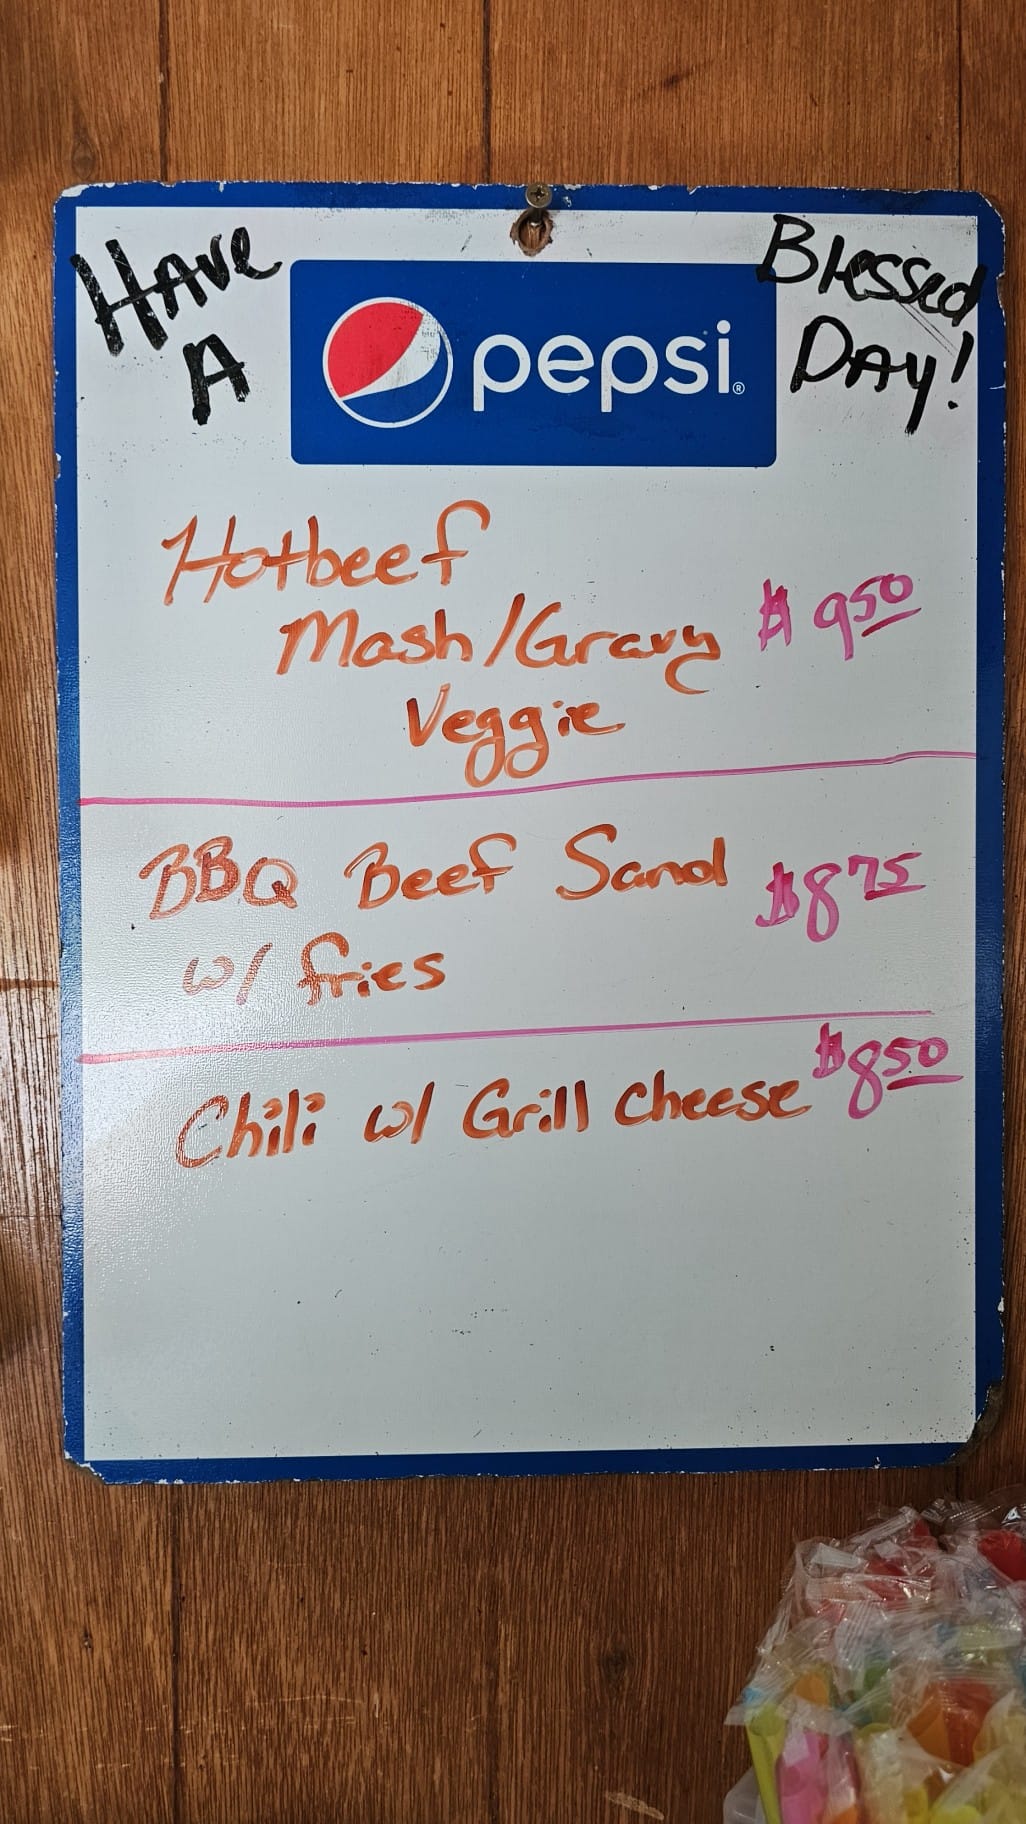 Have
A
pepsi®
Blessed
Day!
Hotbeef
Mash/Gravy $9.50
Veggie
BBQ Beef Sand $8.75
w/ fries
Chili w/ Grill cheese $8.50